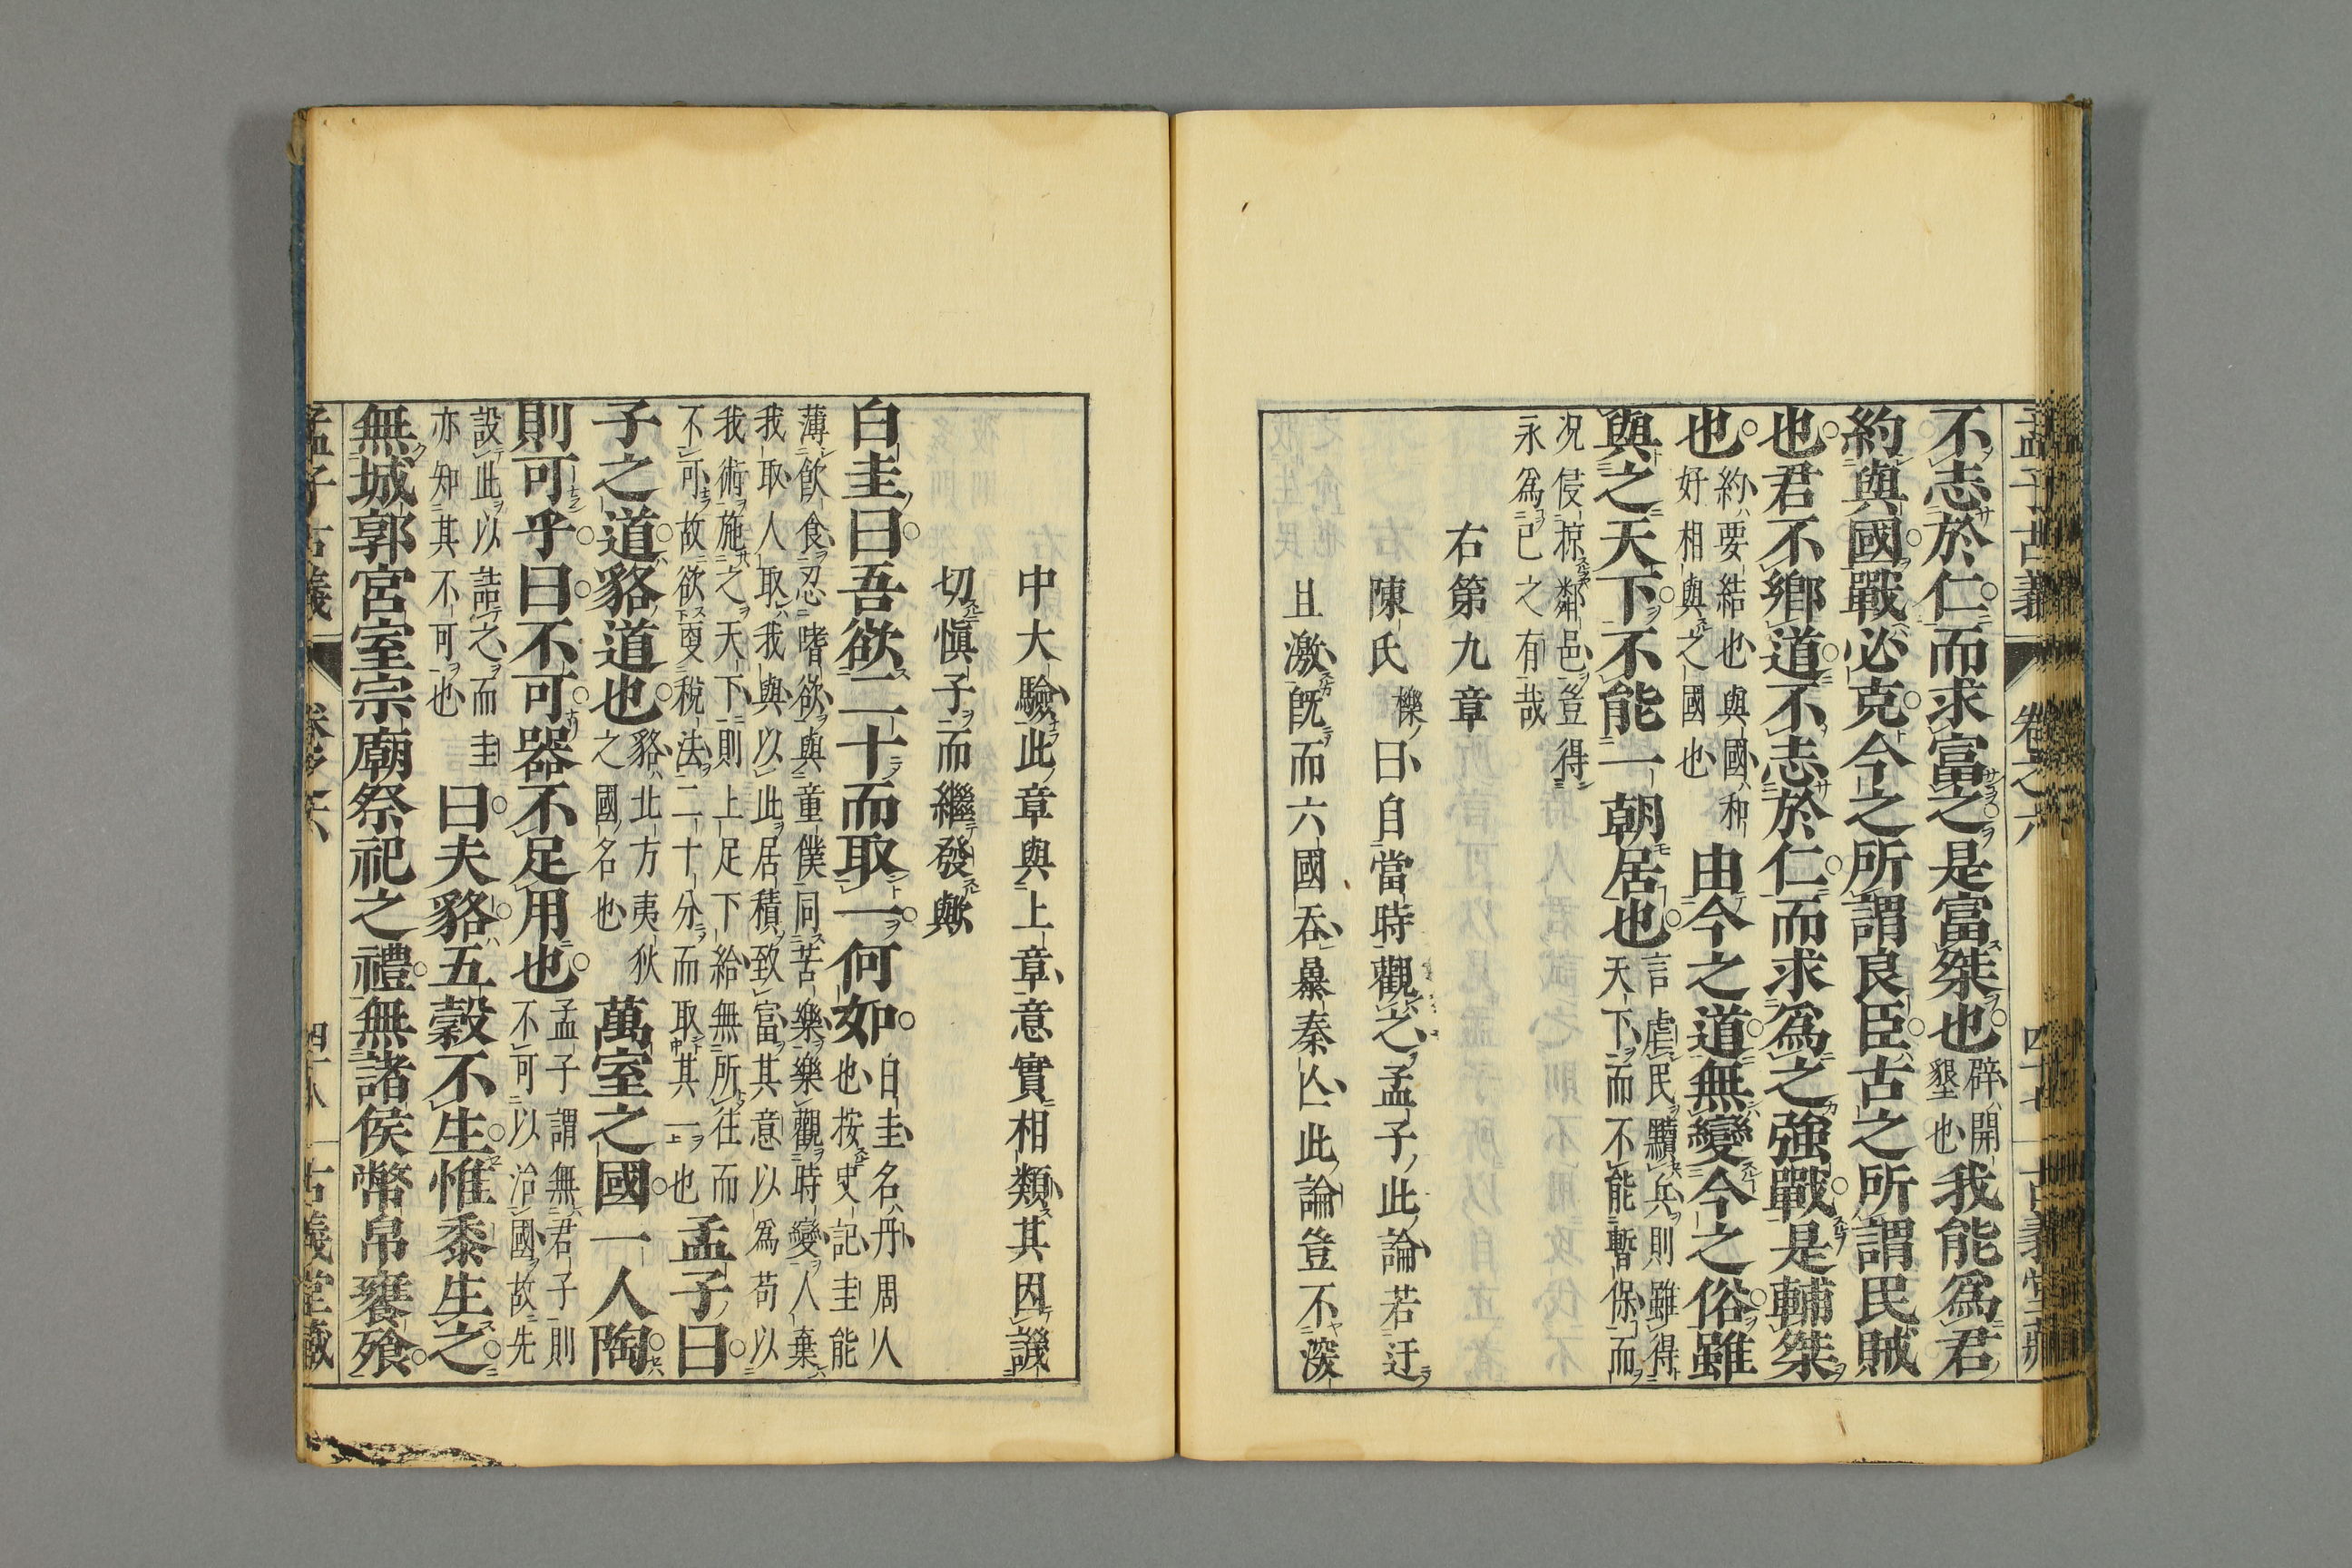 孟子古義 卷之六 四十七 古義堂藏
不志於仁而求富之是富桀也辟開墾也我能爲君
約與國戰必克今之所謂良臣古之所謂民賊
也君不鄉道不志於仁而求爲之強戰是輔桀
也約要結也與國和好相與之國也由今之道無變今之俗雖
與之天下不能一朝居也言虐民黷兵則雖得天下而不能暫保而
況侵掠鄰邑豈得永爲己之有哉
右第九章
陳氏櫟曰自當時觀之孟子此論若迂
且激旣而六國吞暴秦亾此論豈不深
中大驗此章與上章意實相類其因譏
切愼子而繼發歟
白圭曰吾欲二十而取一何如白圭名丹周人也按史記圭能
薄飮食忍嗜欲與童僕同苦樂樂觀時變人棄
我取人取我與以此居積致富其意以爲苟以
我術施之天下則上足下給無所往而
不可故欲更稅法二十分而取其一也孟子曰
子之道貉道也貉北方夷狄之國名也萬室之國一人陶
則可乎曰不可器不足用也孟子謂無君子則不可以治國故先
設此以詰之而圭亦知其不可也曰夫貉五穀不生惟黍生之
無城郭宮室宗廟祭祀之禮無諸侯幣帛饔飱
孟子古義 卷之六 四十八 古義堂藏